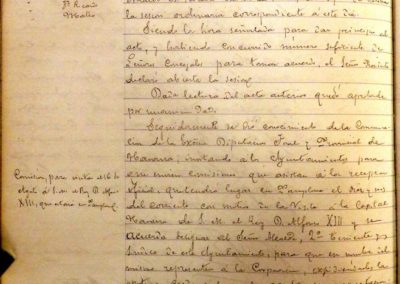 la sesión ordinaria correspondiente á este día.
Siendo la hora señalada para dar principio al
acto, y habiendo concurrido número suficiente de
Señores Concejales para tomar acuerdo, el Señor Presidente
declaró abierta la sesión.
Dada lectura del acta anterior quedó aprobada
por unanimidad.
Seguidamente se dió conocimiento de la Comunica
ción de la Excma Diputación Foral y Provincial de
Navarra, invitando á los Ayuntamientos para
que nombren comisiones que asistan á la recepción
oficial que tendrá lugar en Pamplona el
del corriente con motivo de la Visita á la Capital
Navarra de S. M. el Rey D. Alfonso XIII y se
acuerda designar al Señor Alcalde, 2º Teniente y
Síndico de este Ayuntamiento, para que en nombre del
mismo representen á la Corporación, expidiéndoles la
Comisión para visitar el 16 de
á S. M. el Rey D. Alfonso
XIII, que estará en Pamplona